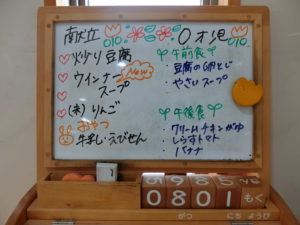 献立
010
010
0才児
炒り豆腐
ウインナースープ
New
(未)りんご
おやつ
牛乳・えびせん
午前食
豆腐の卵とじ
やさいスープ
午後食
クリームチキンがゆ
しらすトマト
バナナ
0801
もく
がつ
にち
ようび